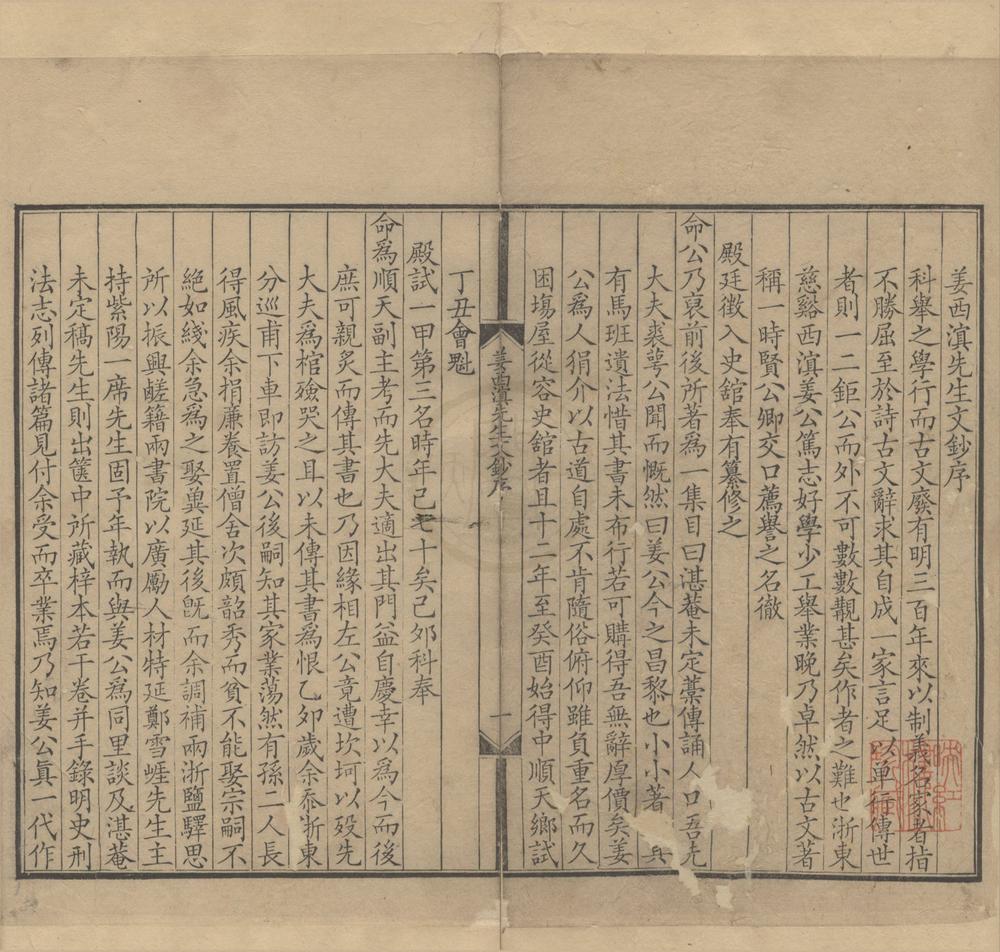 姜西溟先生文鈔序
科舉之學行而古文廢有明三百年來以制義名家者指
不勝屈至於詩古文辭求其自成一家言足以單行傳世
者則一二鉅公而外不可數數覯甚矣作者之難也浙東
慈谿西溟姜公篤志好學少工舉業晚乃卓然以古文著
稱一時賢公卿交口薦譽之名徹
殿廷徵入史舘奉有纂修之
命公乃裒前後所著爲一集目曰湛菴未定藁傳誦人口吾先
大夫裘萼公聞而慨然曰姜公今之昌黎也小小著 具
有馬班遺法惜其書未布行若可購得吾無辭厚價矣姜
公爲人狷介以古道自處不肯隨俗俯仰雖負重名而久
困塲屋從容史舘者且十二年至癸酉始得中順天鄉試
姜西溟先生文鈔序
一
丁丑會魁
殿試一甲第三名時年已七十矣己夘科奉
命爲順天副主考而先大夫適出其門益自慶幸以爲今而後
庶可親炙而傳其書也乃因緣相左公竟遭坎坷以歿先
大夫爲棺殮哭之且以未傳其書爲恨乙夘歲余叅浙東
分巡甫下車即訪姜公後嗣知其家業蕩然有孫二人長
得風疾余捐廉養置僧舍次頗韶秀而貧不能娶宗嗣不
絕如綫余急爲之娶兾延其後旣而余調補兩浙鹽驛思
所以振興鹺籍兩書院以廣勵人材特延鄭雪崕先生主
持紫陽一席先生固予年執而與姜公爲同里談及湛菴
未定稿先生則出篋中所藏梓本若干卷并手錄明史刑
法志列傳諸篇見付余受而卒業焉乃知姜公眞一代作